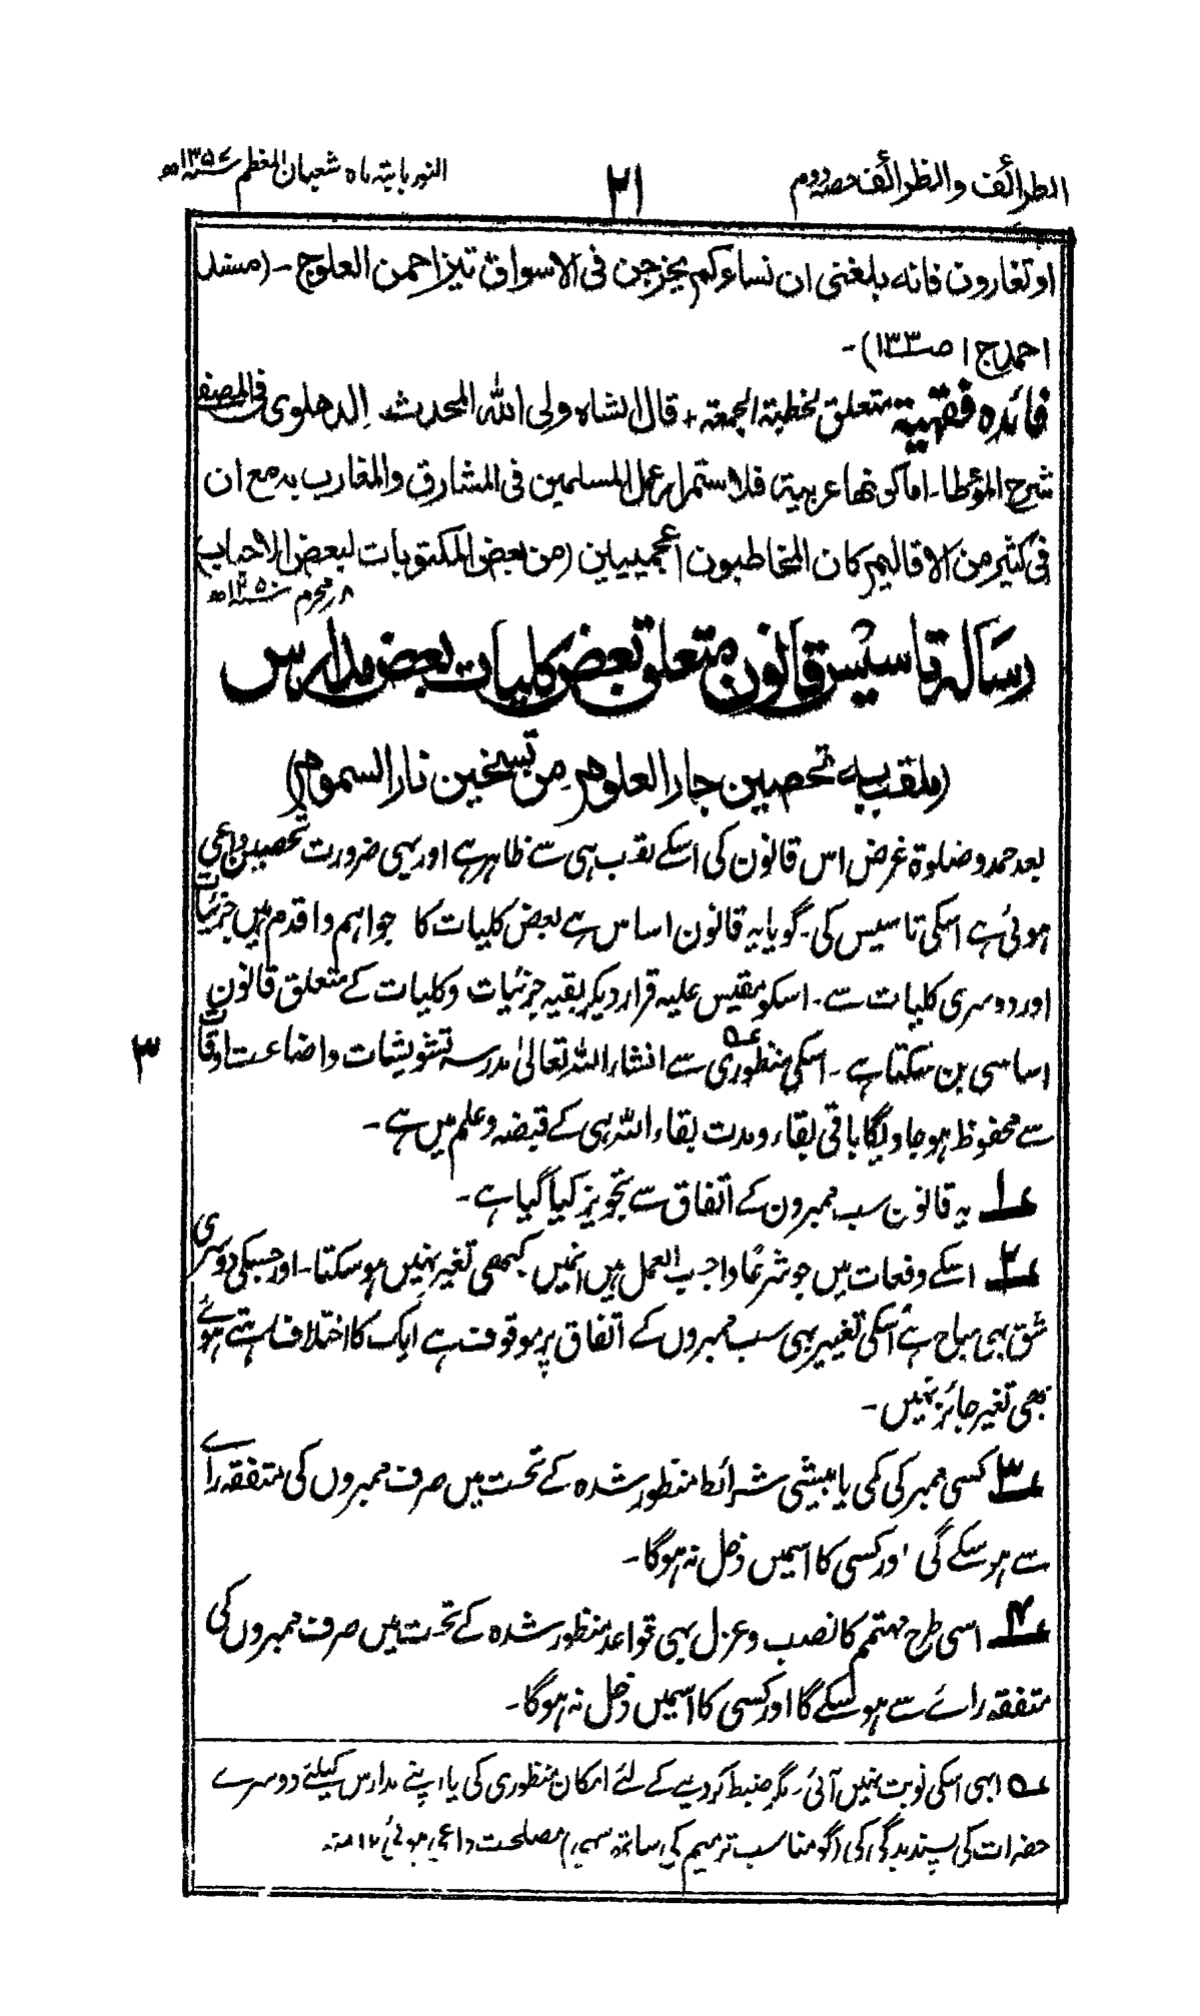 الطرائف والظرائف حصہ دوم
۲۱
النور بابتہ ماہ شعبان المعظم ۱۳۵۷ھ
او تغارون فانہ بلغنی ان نساءکم یخرجن فی الاسواق تیزاحمن العلوج ۔ (مسند
احمد ج ۱ ص۱۳۳)۔
فائدہ فقہیۃ متعلق بخطبۃ الجمعۃ + قال الشاہ ولی اللہ المحدث الدھلوی فی المصفی
شرح المؤطا ۔ اما کونھا عربیۃ فلاستمرار عمل المسلمین فی المشارق والمغارب بہ مع ان
فی کثیر من الاقالیم کان المخاطبون اعجمیین (من بعض المکتوبات لبعض الاحباب)
۸ رمحرم
رسالہ تاسیس قانون متعلق بعض کلیات بعض مدارس
(ملقب بہ تحصین جار العلوم من تسخین نار السموم)
بعد حمد و صلوۃ غرض اس قانون کی اسکے لقب ہی سے ظاہر ہے اور یہی ضرورت تحصین داعی
ہوئی ہے اسکی تاسیس کی۔ گویا یہ قانون اساس ہے بعض کلیات کا جو اہم و اقدم ہیں جزئیات
اور دوسری کلیات سے ۔ اسکو مقیس علیہ قرار دیکر بقیہ جزئیات و کلیات کے متعلق قانون
اساسی بن سکتا ہے ۔ اسکی منظوری عہ سے انشاء اللہ تعالیٰ مدرسہ تشویشات واضاعت اوقات
۳
سے محفوظ ہو جاویگا باقی بقاء و مدت بقاء اللہ ہی کے قبضہ و علم میں ہے ۔
۱؎ یہ قانون سب ممبرون کے اتفاق سے تجویز کیا گیا ہے ۔
۲؎ اسکے دفعات میں جو شرعًا واجب العمل ہیں انمیں کبھی تغیر نہیں ہو سکتا۔ اور جسکی دوسری
شق بھی مباح ہے اُسکی تغییر بھی سب ممبروں کے اتفاق پر موقوف ہے ایک کا اختلاف رہتے ہوئے
بھی تغیر جائز نہیں ۔
۳؎ کسی ممبر کی کمی یا بیشی شرائط منظور شدہ کے تحت میں صرف ممبروں کی متفقہ رائے
سے ہو سکے گی اور کسی کا اسمیں دخل نہ ہوگا ۔
۴؎ اسی طرح مہتمم کا نصب و عزل بھی قواعد منظور شدہ کے تحت میں صرف ممبروں کی
متفقہ رائے سے ہو سکے گا اور کسی کا اسمیں دخل نہ ہوگا ۔
عہ ابھی اسکی نوبت نہیں آئی ۔ مگر ضبط کر دینے کے لئے امکان منظوری کی یا اپنے مدارس کیلئے دوسرے
حضرات کی پسندیدگی کی (گو مناسب ترمیم کی ساتھ سہی) مصلحت داعی ہوئی ۱۲ منہ